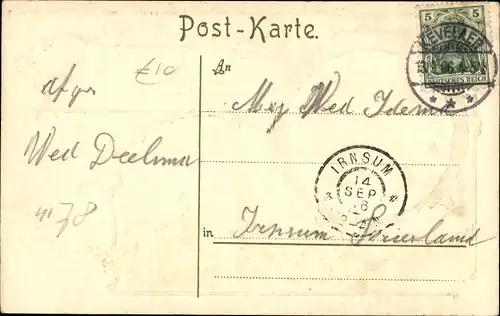 Post-Karte.
5
DEUTSCHES REICH
KEVELAER
An
£10
afz.
Wed Deelsma
Mej Wed Idema
IRNSUM
14
SEP
6
in Irnsum Frierland